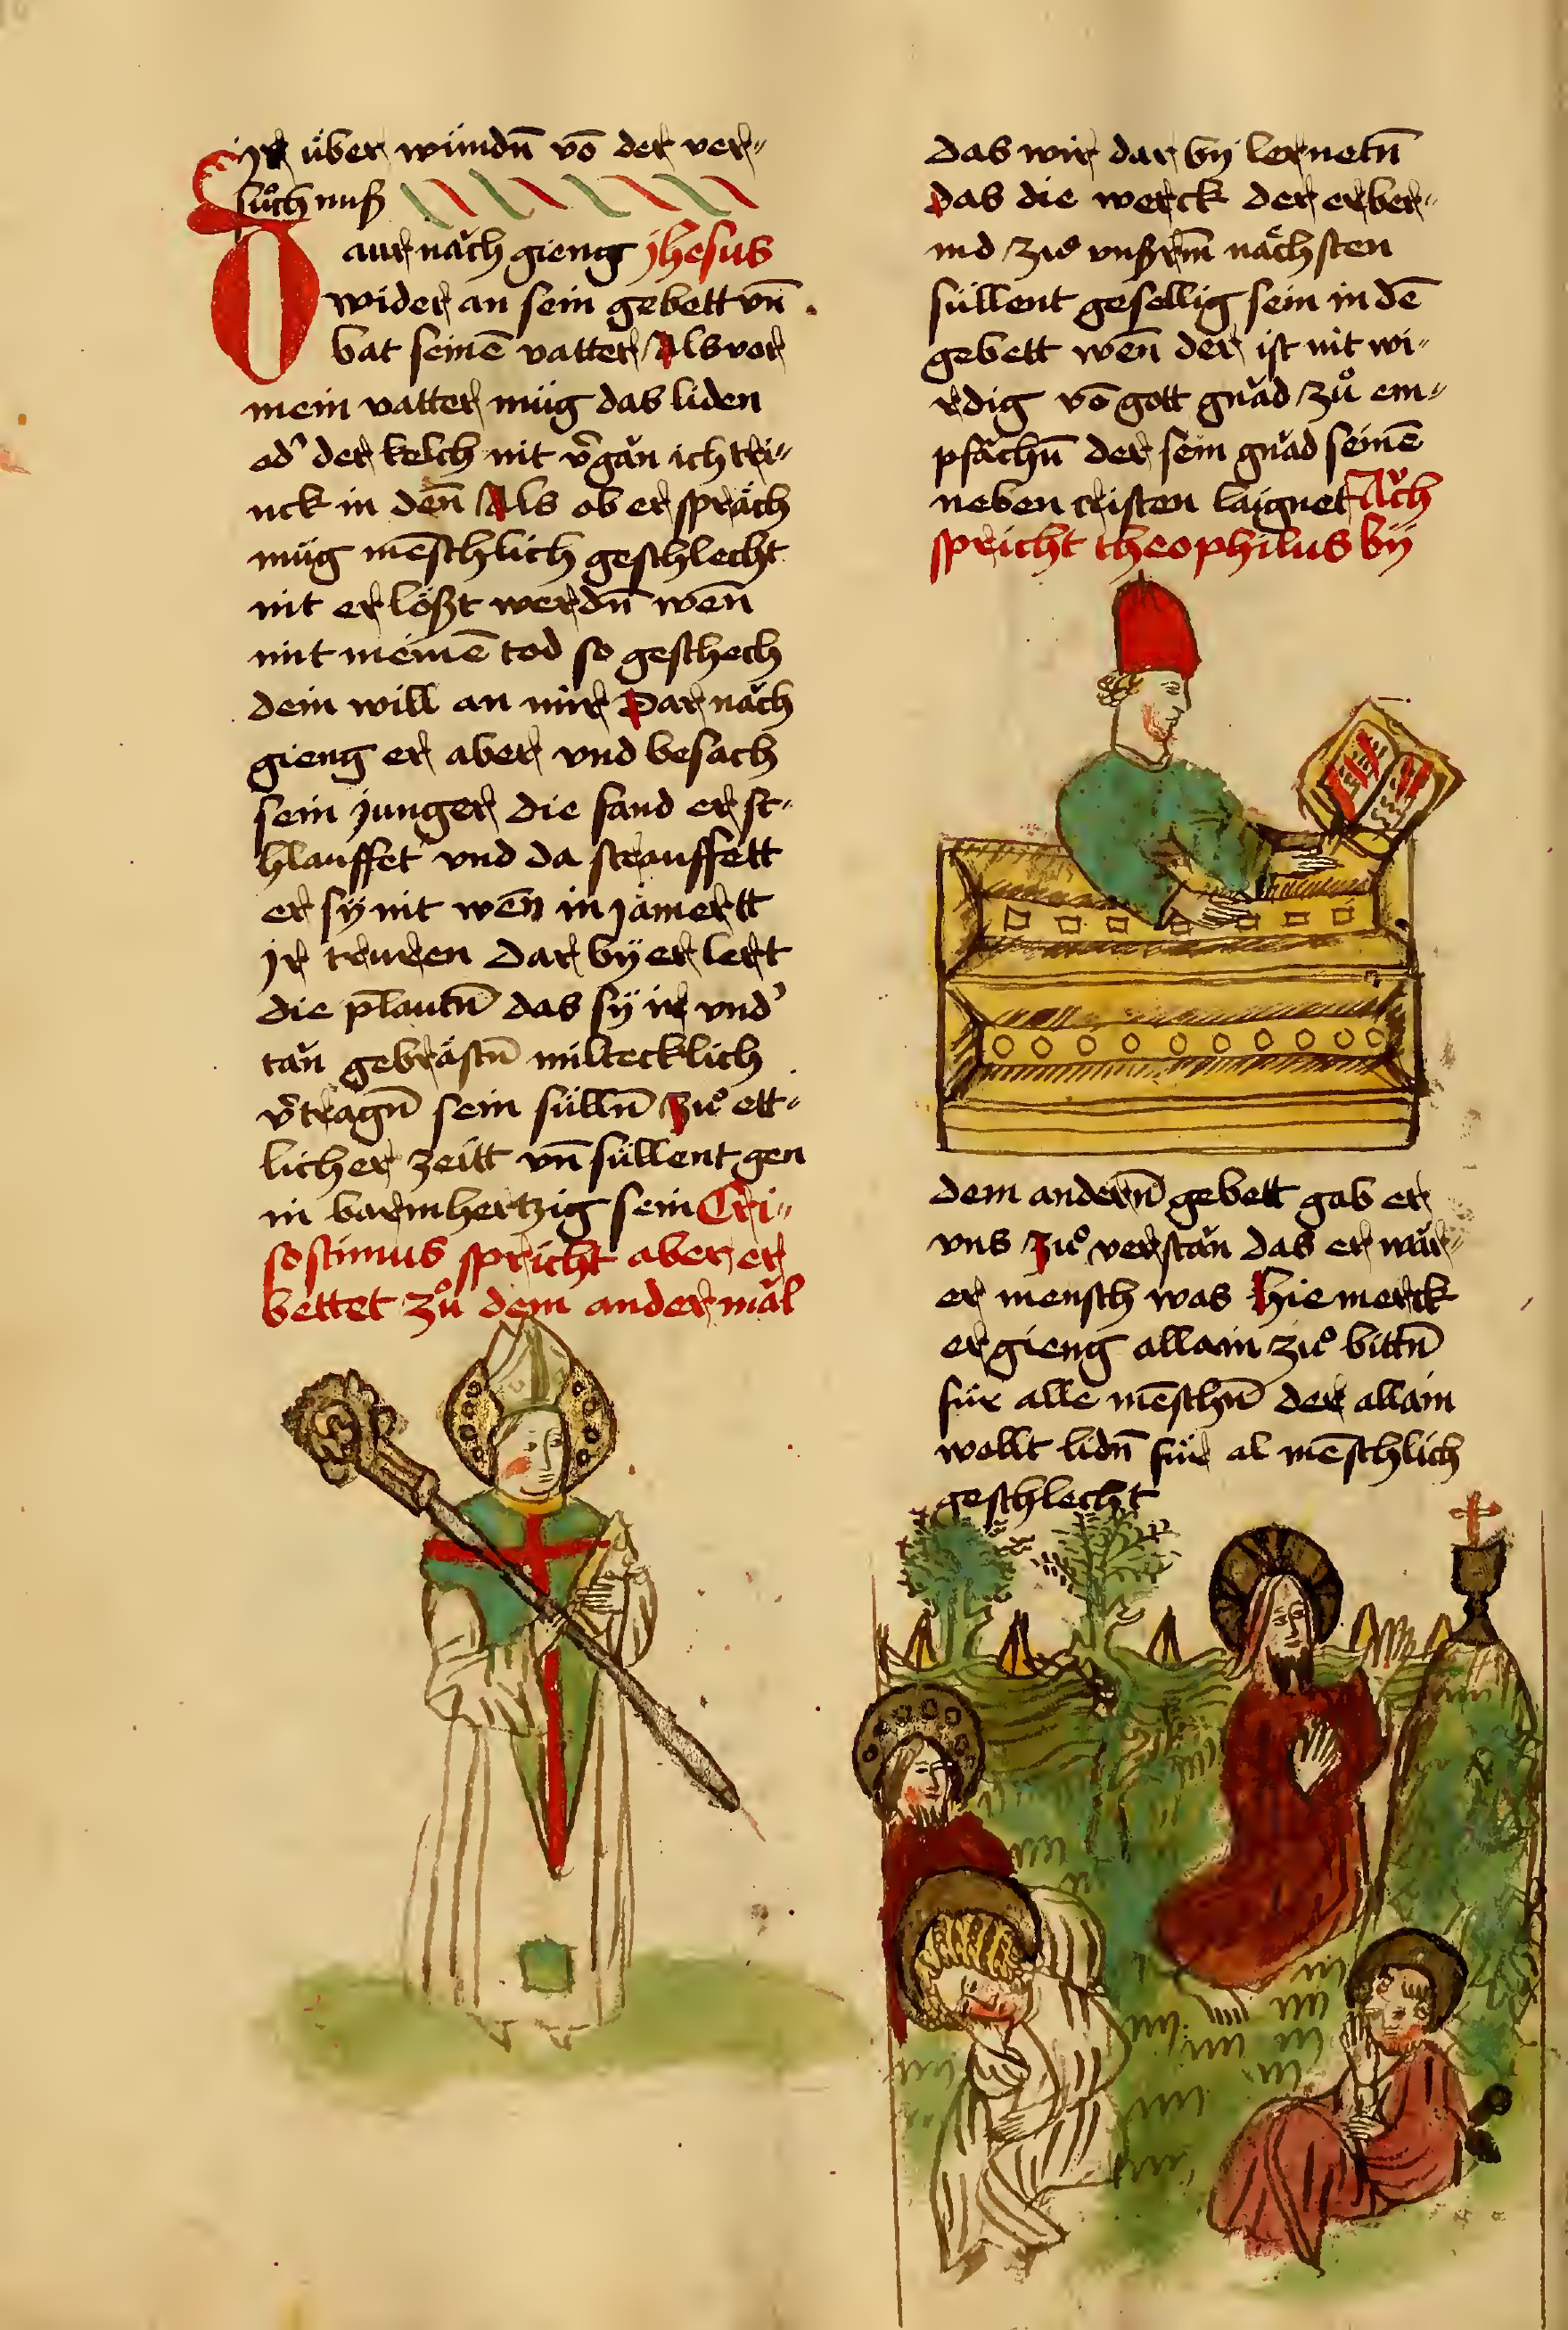 ir über wundn̄ vō der ver〃
suͦch nuß
Daur nǎch gieng jhesus
wider an sein gebett vn̄
bat seinē vatter Als vor
mein vatter müg das liden
od' der kelch nit v̄gǎn ich tri〃
nck in den̄ Als ob er sprǎch
müg mēschlich geschlecht
nit erlößt werdn̄ wen̄
mit meinē tod so geschech
dein will an mir Dar nǎch
gieng er aber vnd besach
sein junger die fand er sc〃
hlauffet vnd da strauffett
er sÿ nit wen̄ in jamertt
jr truren Dar bÿ er lert
die p̄lautn̄ das sÿ ir vnd'
tǎn gebrästn̄ miltecklich
v̄tragn̄ sein sülln̄ Zuͦ ett〃
licher zeitt vn̄ süllent gen
in barmhertzig sein Cri〃
sostimus spricht aber er
bettet zuͦ dem ander mǎl
das wir dar bÿ lernetn̄
das die werck der erber〃
md zuͦ vnßrm̄ nächsten
süllent gesellig sein in dē
gebett wen̄ der ist nit wi〃
rdig vō gott gnǎd zuͦ em〃
pfǎchn̄ der sein gnǎd seinē
neben cristen laignet Aǔch
spricht theophilus bÿ
dem andern̄ gebett gab er
vns zuͦ verstǎn das er wǎr〃
er mensch was Hie merck
er gieng allain zuͦ bittn̄
für alle mēschn̄ der allain
wollt lidn̄ für al mēschlich
geschlecht